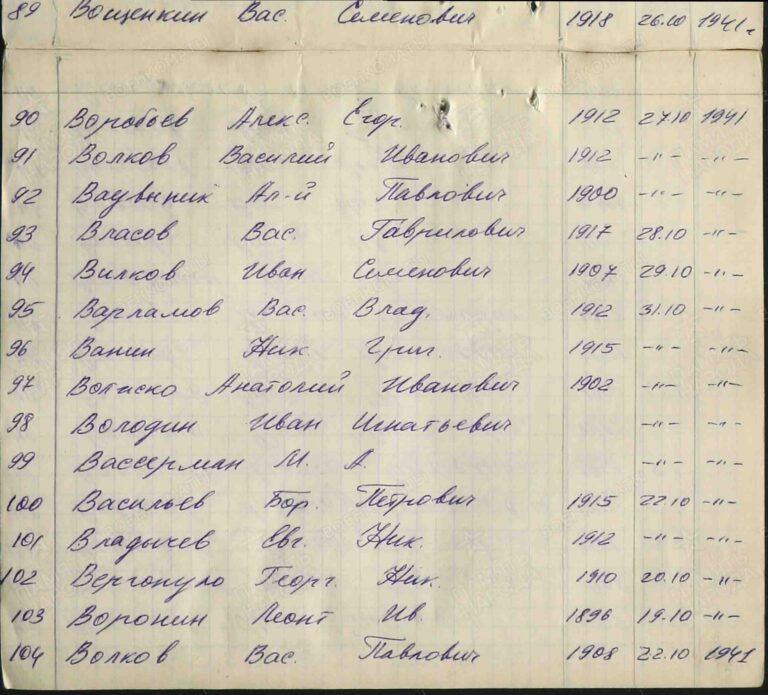 89 Вощенкин Вас. Семенович 1918 26.10 1941 г
90 Воробьев Алекс. Егор. 1912 27.10 1941
91 Волков Василий Иванович 1912 -"- -"-
92 Вадвыник Ал-й Павлович 1900 -"- -"-
93 Власов Вас. Гаврилович 1917 28.10 -"-
94 Вилков Иван Семенович 1907 29.10 -"-
95 Варламов Вас. Влад. 1912 31.10 -"-
96 Ванин Ник. Григ. 1915 -"- -"-
97 Анатолий Иванович 1902 -"- -"-
98 Володин Иван Игнатьевич -"- -"-
99 Вассерман М. А. -"- -"-
100 Васильев Бор. Петрович 1915 22.10 -"-
101 Владычев Евг. Ник. 1912 -"- -"-
102 Вергопуло Георг. Ник. 1910 20.10 -"-
103 Воронин Леонт Ив. 1896 19.10 -"-
104 Волков Вас. Павлович 1908 22.10 1941